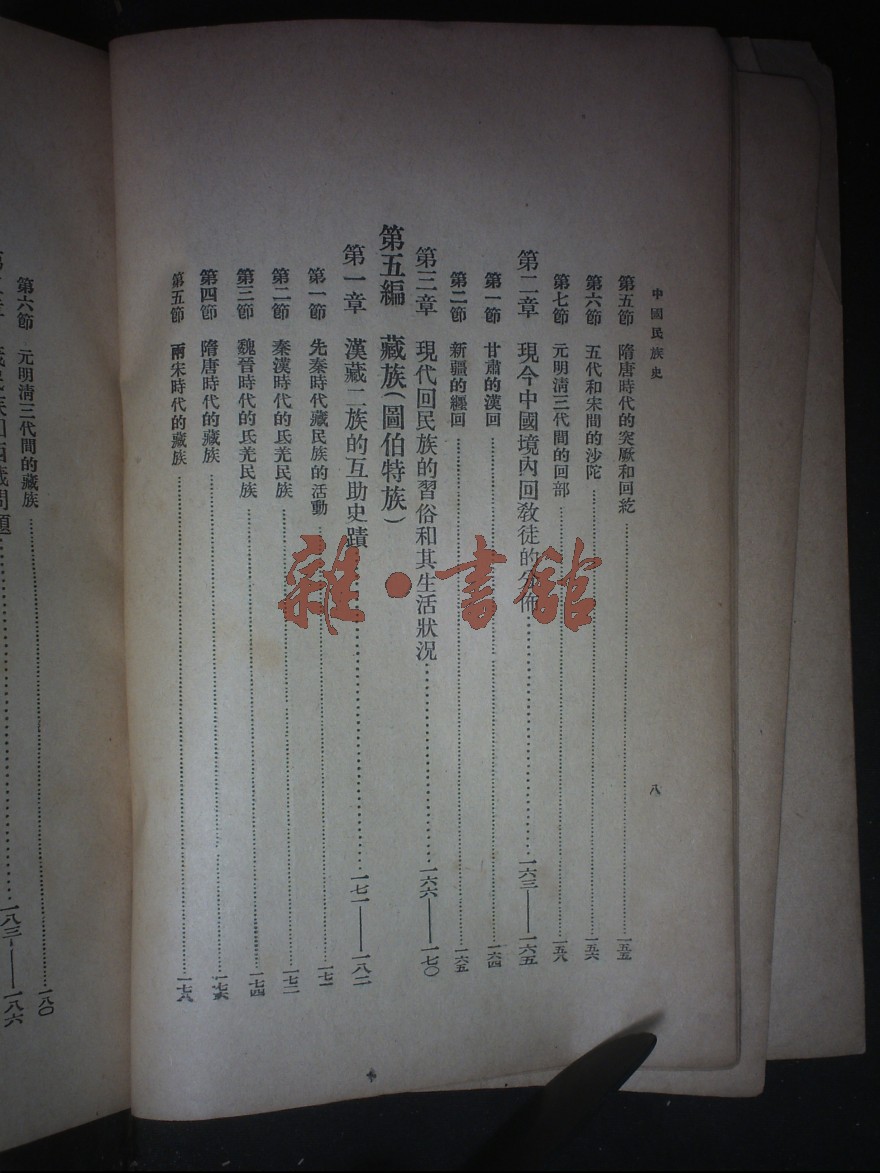 中國民族史
八
第五節 隋唐時代的突厥和回紇 一五五
第六節 五代和宋間的沙陀 一五六
第七節 元明淸三代間的回部 一五八
第二章 現今中國境內回敎徒的分佈 一六三——一六五
第一節 甘肅的漢回 一六四
第二節 新疆的纏回 一六五
第三章 現代回民族的習俗和其生活狀况 一六六——一七〇
第五編 藏族(圖伯特族)
第一章 漢藏二族的互助史蹟 一七一——一八二
第一節 先秦時代藏民族的活動 一七一
第二節 秦漢時代的氐羌民族 一七二
第三節 魏晉時代的氐羌民族 一七四
第四節 隋唐時代的藏族 一七六
第五節 兩宋時代的藏族 一七八
第六節 元明淸三代間的藏族 一八〇
問題 一八三——一八六
雜·書館